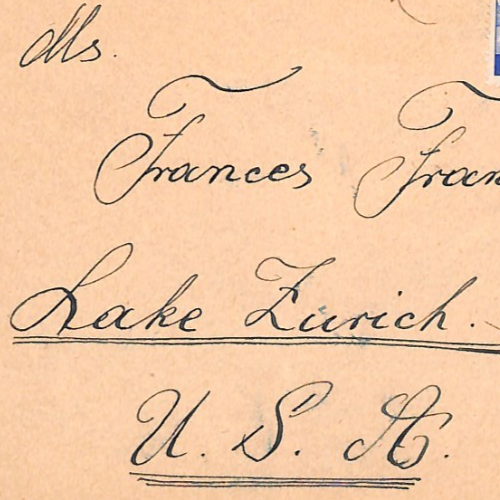 Ms.
Frances Fran
Lake Zurich.
U. S. A.